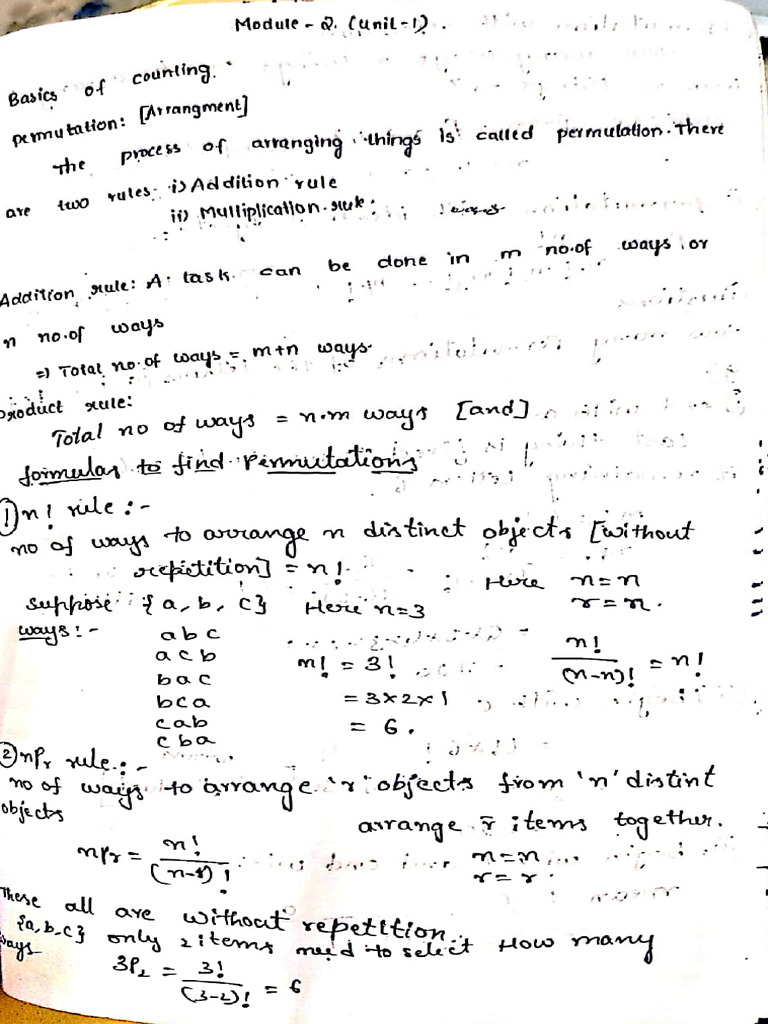 Module - 2. (Unit-1).
Basics of counting.
permutation: [Arrangment]
The process of arranging things is called permutation. There
are two rules: i) Addition rule
ii) Multiplication rule:
Addition rule: A task can be done in m no.of ways or
n no.of ways
=) Total no.of ways = m+n ways.
product rule:
Total no of ways = n·m ways [and]
formulas to find Permutations
① n! rule :-
no of ways to arrange n distinct objects [without
repetition] = n!
Here n=n
suppose {a, b, c} Here n=3 r=n.
ways:-
abc
acb n! = 3! n!/(n-n)! = n!
bac
bca = 3×2×1
cab = 6.
cba
② nPr rule:-
no of ways to arrange 'r' objects from 'n' distint
objects arrange r items together.
nPr = n!/(n-r)! n=n
r=r
These all are without repetition
{a,b,c} only 2 items need to select How many
ways
3P2 = 3!/(3-2)! = 6